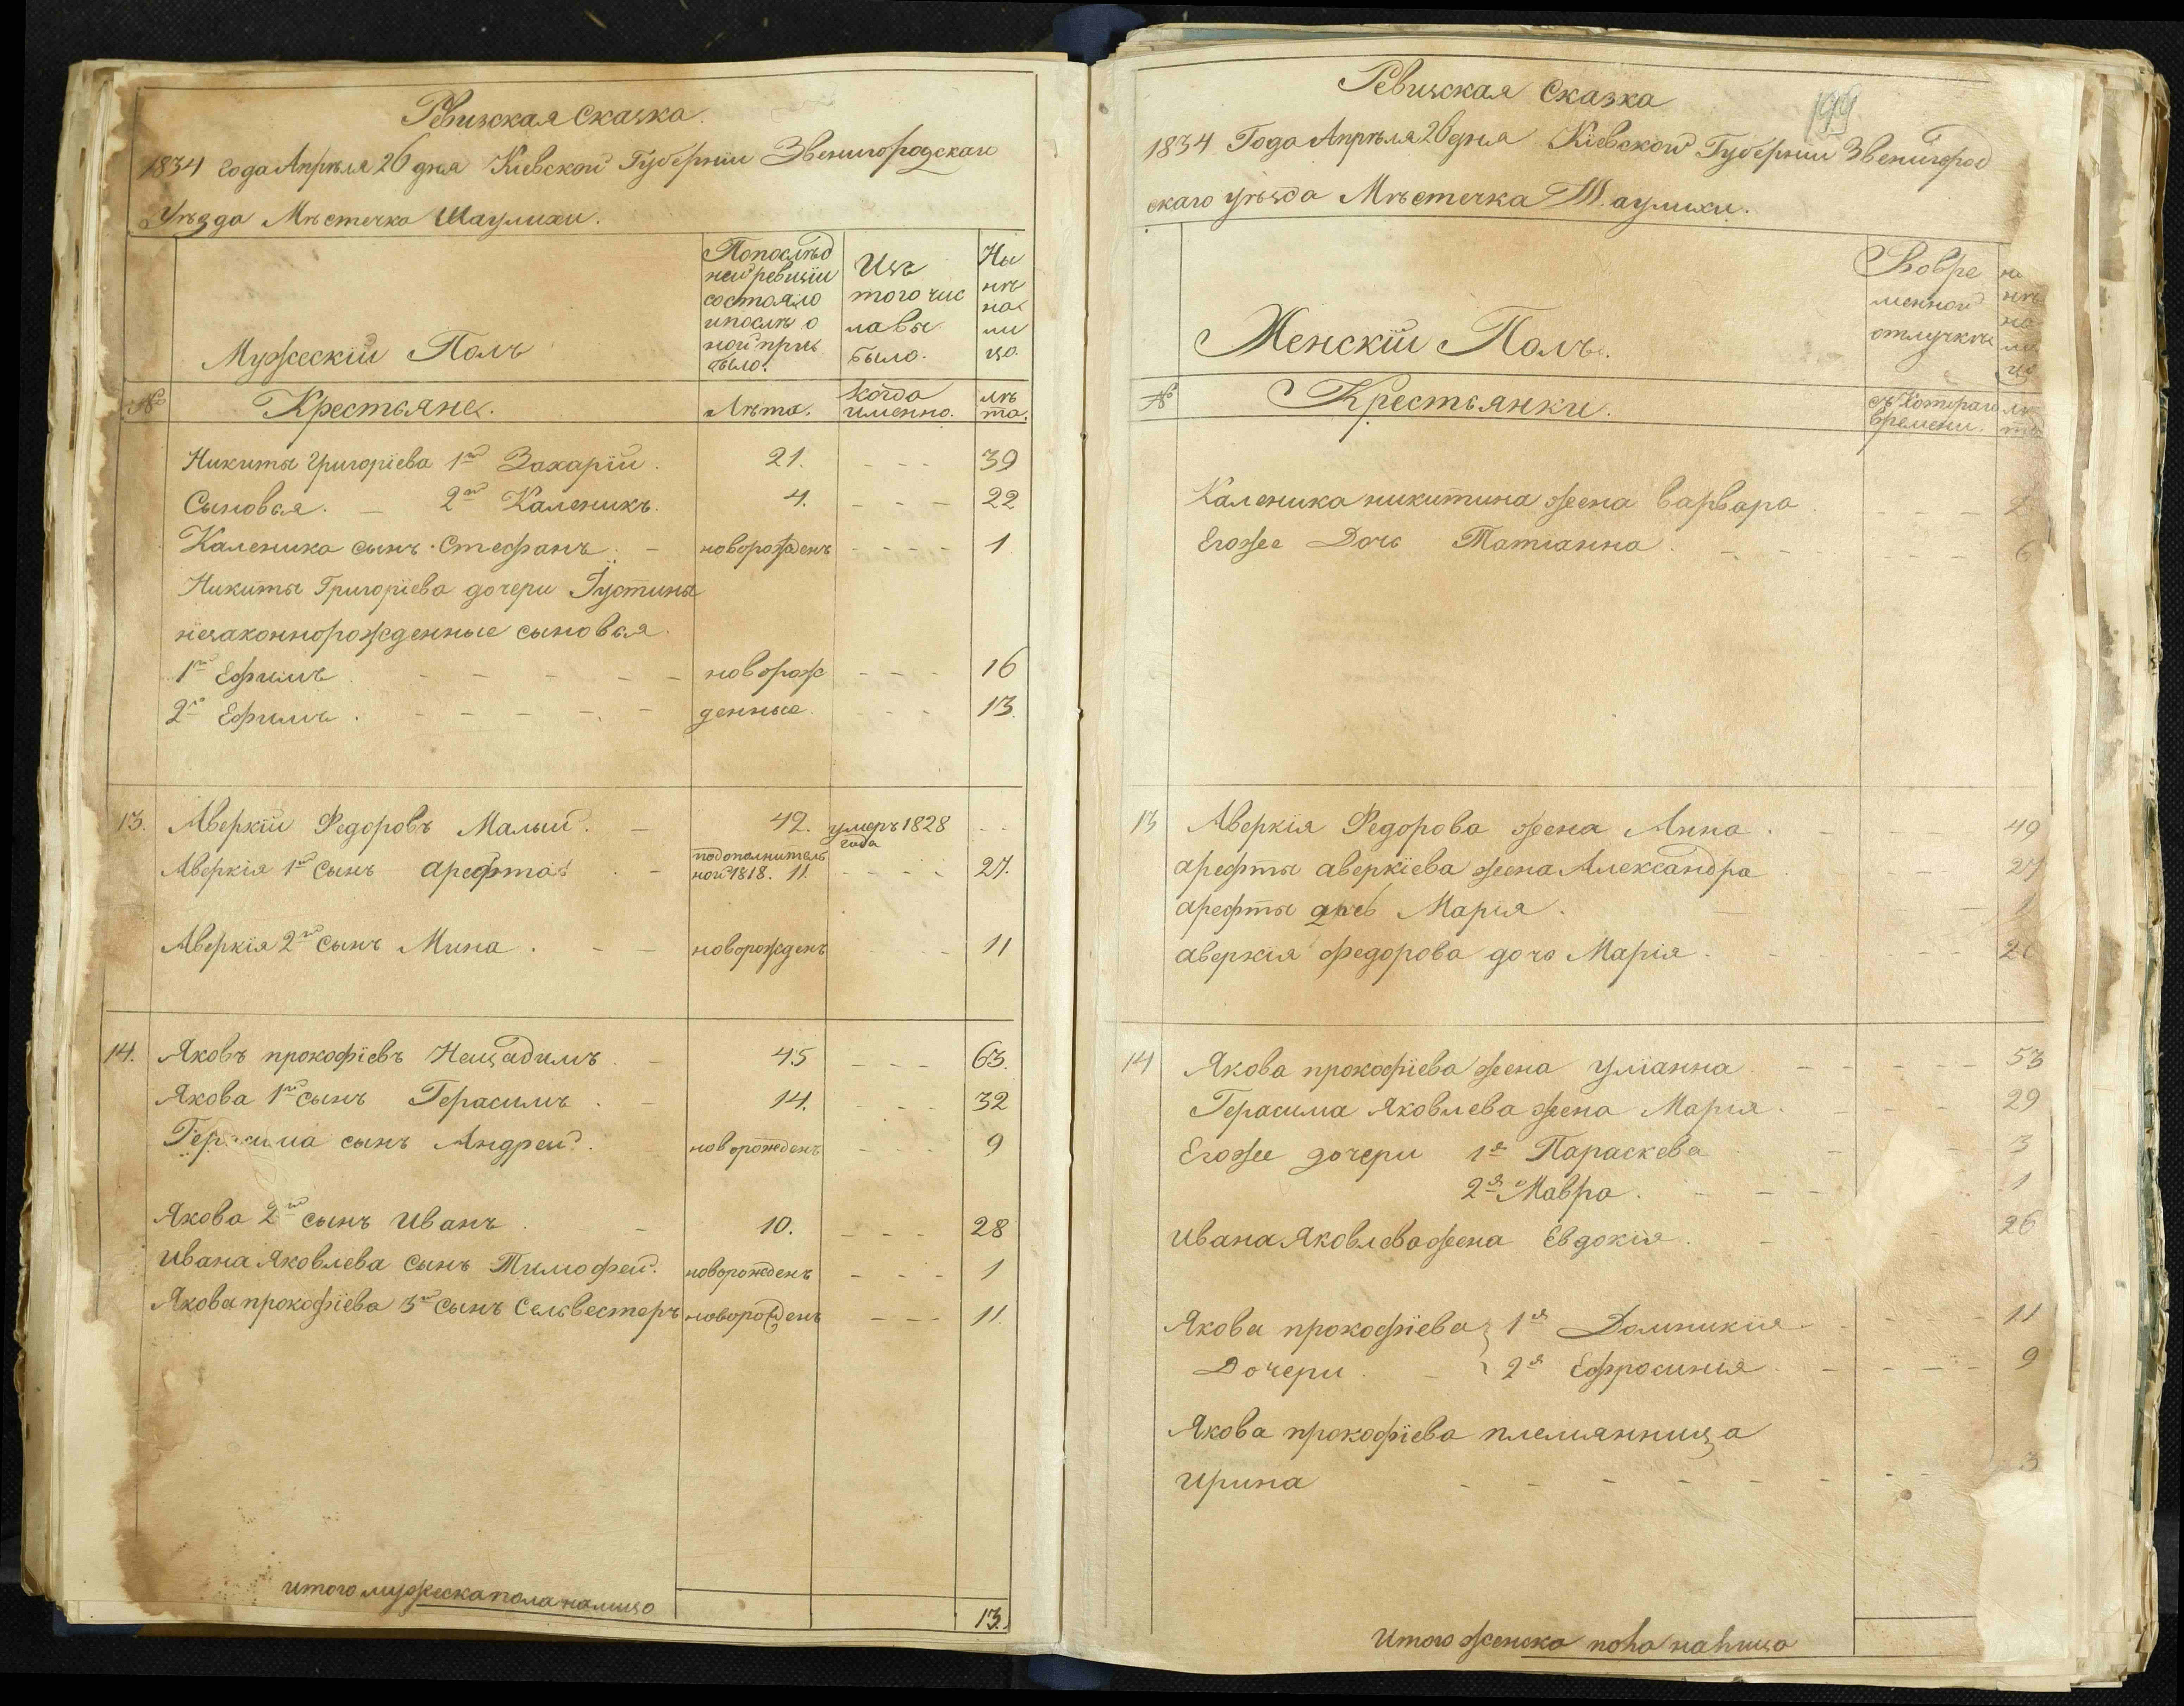 Ревизская Сказка.
1834 года Апрѣля 26 дня Киевской Губернїи Звенигородскаго
Уѣзда Мѣстечка Шаулихи.
Мужескїй Полъ
Попослѣд
ней ревизїи
состояло
ипослѣ о
ной при
было.
Изъ
того чис
ла вы
было.
Ны
нѣ
на
ли
цо.
№
Крестьяне.
Лѣта.
когда
именно.
лѣ
та.
Никиты Григорїева 1й Захарїй. 21. - - - 39
Сыновья. - 2й Каленикъ. 4. - - - 22
Каленика сынъ Стефанъ. - новорожденъ - - - - 1
Никиты Григорїева дочери Їустины
незаконнорожденные сыновья.
1й Ефимъ - - - - - новорож - - - 16
2й Ефимъ. - - - - - денные. - - - 13.
13. Аверкїй Федоровъ Малый. - 42. умеръ 1828 - -
года
Аверкїя 1й сынъ арефта - подополнитель
ной 1818. 11. - - - - 27.
Аверкїя 2й сынъ Мина. - - новорожденъ - - 11
14. Яковъ прокофїевъ Нещадимъ. - 45 - - - 63.
Якова 1й сынъ Герасимъ. - 14. - - - 32
Герасима сынъ Андрей. новорожденъ - - - 9
Якова 2й сынъ Иванъ. - 10. - - - 28
Ивана Яковлева сынъ Тимофей. новорожденъ - - - 1
Якова прокофїева 3й сынъ Сельвестеръ новорожденъ - - - 11.
итого мужеска пола налицо 13.
Ревизская Сказка
199
1834 Года Апрѣля 26 дня Кїевской Губернїи Звенигород
скаго уѣзда Мѣстечка Шаулихи.
Женскїй Полъ.
Вовре
менной
отлучкѣ
на
ли
цо
№
Крестьянки.
съ котораго
времени.
Каленика никитина жена варвара - - -
Егоже Дочь Татіанна. - - - - 6
13 Аверкїя Федорова жена Анна. - - - 49
арефты аверкїева жена Александра - - 27
арефты дочь Марія. - - 1
аверкїя федорова дочь Марїя. - - - -
14 Якова прокофїева жена Улїанна. - - - - - 53
Герасима Яковлева жена Марія. - - - 29
Егоже дочери 1я Параскева - - 3
2я Мавра. - - - 1
Ивана Яковлева жена Евдокїя. - - 26
Якова прокофїева 1я Домникїя. - - - 11
Дочери. - 2я Ефросинїя. - - - - 9
Якова прокофїева племянница
Ирина - - - - - - - - 3
Итого женска пола налицо